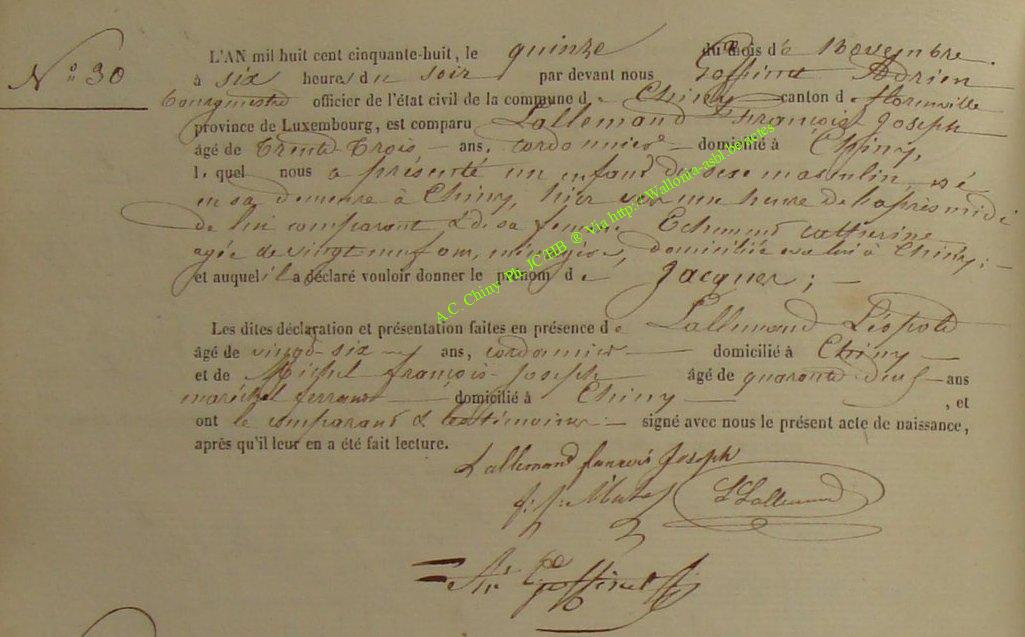 N.o 30
L'AN mil huit cent cinquante-huit, le quinze du mois de novembre
à six heures du soir par devant nous Goffinet Adrien
bourgmestre officier de l'état civil de la commune de Chiny canton de Florenville
province de Luxembourg, est comparu Lallemand François Joseph
âgé de trente trois ans, cordonnier domicilié à Chiny,
lequel nous a présenté un enfant du sexe masculin, né
en sa demeure à Chiny, hier vers une heure de l'après midi
de lui comparant & de sa femme Catherine
agée de vingt neuf ans, ménagère, domiciliée avec lui à Chiny;
et auquel il a déclaré vouloir donner le prénom de Jacques;
Les dites déclaration et présentation faites en présence de Lallemand Léopold
âgé de vingt-six ans, cordonnier domicilié à Chiny
et de Michel françois-Joseph âgé de quarante deux ans
maréchal ferrant domicilié à Chiny , et
ont le comparant & les témoins signé avec nous le présent acte de naissance,
après qu'il leur en a été fait lecture.
Lallemand francois Joseph
L Lallemand
Ad Goffinet
A.C. Chiny Ph. JC/HB ® Via http://Wallonia-asbl.be/actes